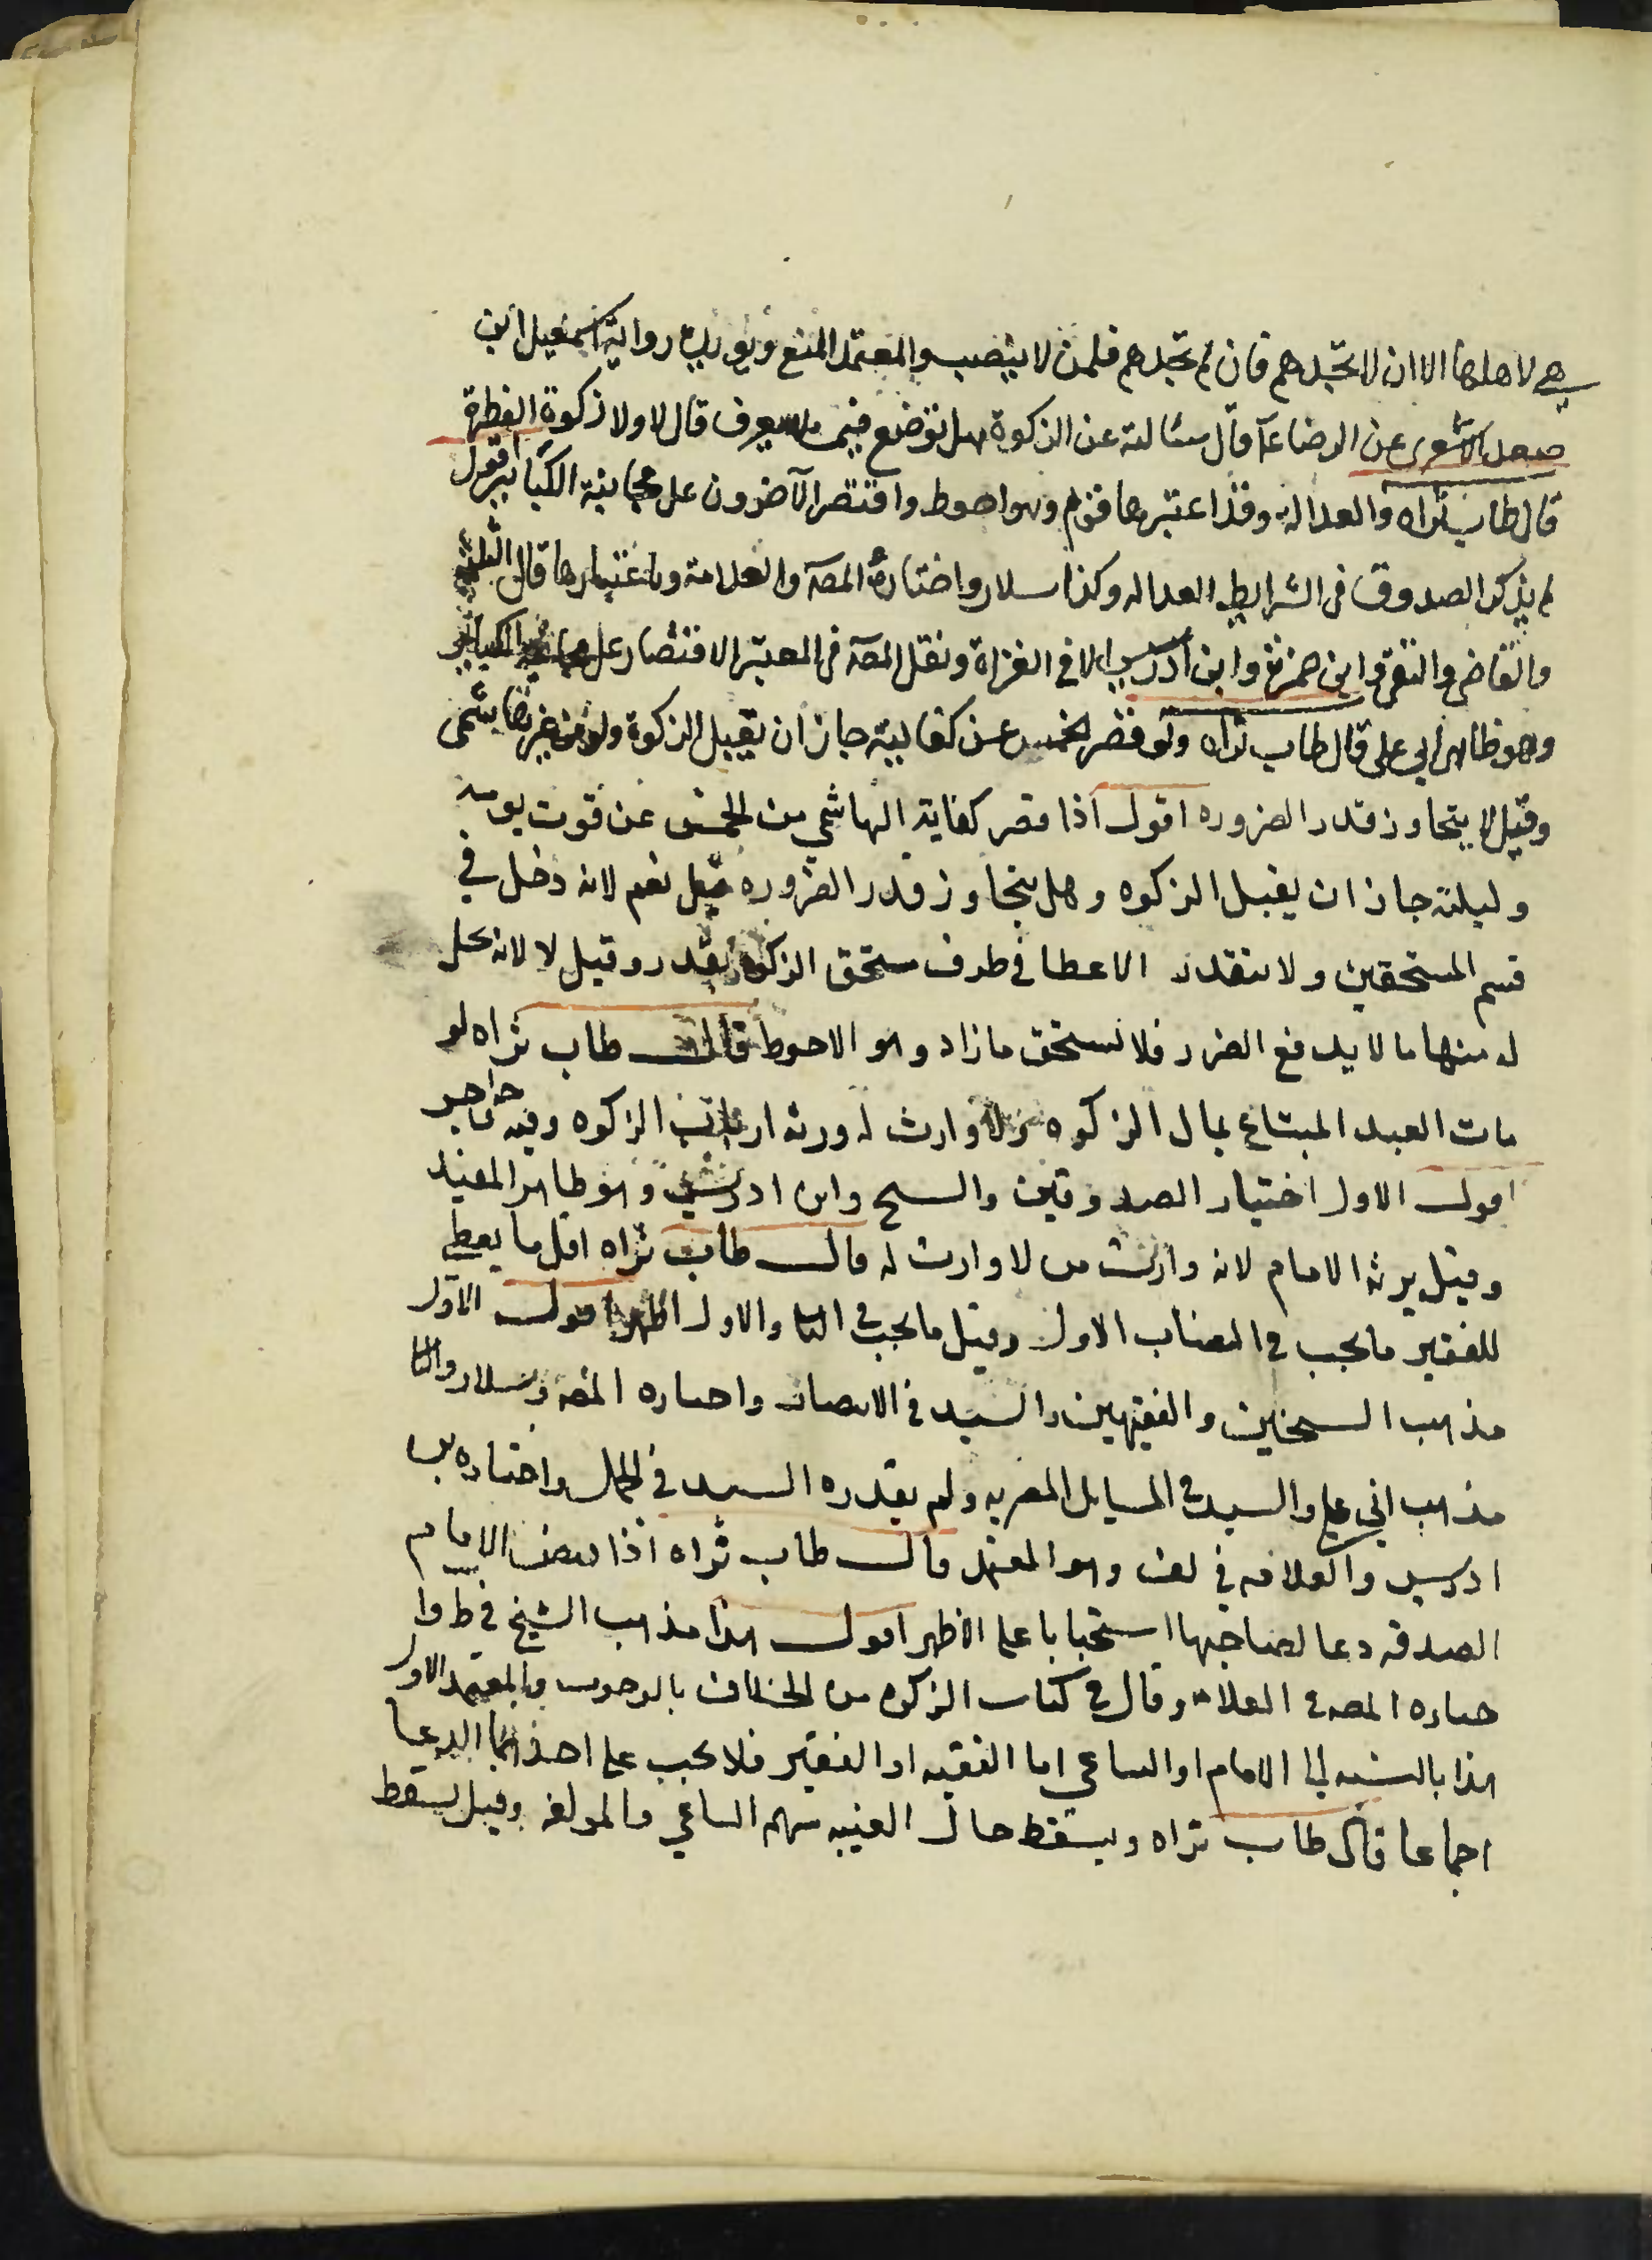 هي لاهلها الا ان لا تجدهم فان لم تجدهم فلمن لا ينصب والمعتمد المنع ويؤيده رواية اسمعيل ابن
سعد الاشعري عن الرضا ع قال سئالته عن الزكوة هل توضع فيمن لا يعرف قال لا ولا زكوة الفطرة
قال طاب ثراه والعدالة وقد اعتبرها قوم وهو احوط واقتصر الآخرون على مجانبة الكبائر اقول
لم يذكر الصدوق في الشرايط العداله وكذا سلار واختاره المصه والعلامة وباعتبارها قال الثلثة
والقاضي والتقي وابن حمزة وابن ادريس الا في الغزاة ونقل المصه في المعتبر الاقتصار على مجانبة الكبائر
وهو ظاهر ابي علي قال طاب ثراه ولو قصر الخمس عن كفايته جاز ان يقبل الزكوة ولو من غير هاشمي
وقيل لا يتجاوز قدر الضروره اقول اذا قصر كفاية الهاشمي من الخمس عن قوت يومه
وليلته جاز ان يقبل الزكوه وهل يتجاوز قدر الضروره قيل نعم لانه دخل في
قسم المستحقين ولا يتقدر الاعطا في طرف مستحق الزكوه بقدر وقيل لا لانه يحل
له منها ما لا يدفع الضرر فلا يستحق ما زاد وهو الاحوط قال طاب ثراه لو
مات العبد المبتاع بمال الزكوه ولا وارث له ورثه ارباب الزكوه وفيه
اقول الاول اختيار الصدوقين والشيخ وابن ادريس وهو ظاهر المفيد
وقيل يرثه الامام لانه وارث من لا وارث له قال طاب ثراه اقل ما يعطى
للفقير ما يجب في النصاب الاول وقيل ما يجب في الثاني والاول اظهر اقول الاول
مذهب الشيخين والفقيهين والسيد في الانتصار واختاره المصه وسلار والثاني
مذهب ابي علي والسيد في المسايل المصريه ولم يقدره السيد في الجمل واختاره بن
ادريس والعلامه في لف وهو المعتمد قال طاب ثراه اذا قبض الامام
الصدقه دعا لصاحبها استحبابا على الاظهر اقول هذا مذهب الشيخ في ط وا
ختاره المصه و العلامه وقال في كتاب الزكوه من الخلاف بالوجوب والمعتمد الاول
هذا بالنسبه الى الامام او الساعي اما الفقيه او الفقير فلا يجب على احدهما الدعا
اجماعا قال طاب ثراه ويسقط حال الغيبه سهم الساعي والمولفه وقيل يسقط